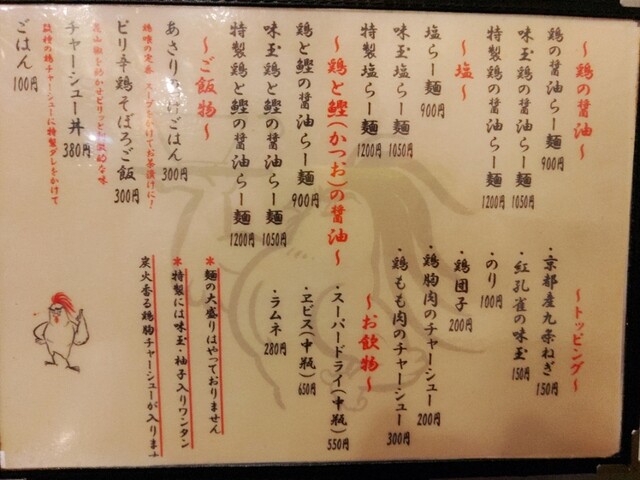 ～鶏の醤油～
鶏の醤油らー麺 900円
味玉鶏の醤油らー麺 1050円
特製鶏の醤油らー麺 1200円
～塩～
塩らー麺 900円
味玉塩らー麺 1050円
特製塩らー麺 1200円
～鶏と鰹(かつお)の醤油～
鶏と鰹の醤油らー麺 900円
味玉鶏と鰹の醤油らー麺 1050円
特製鶏と鰹の醤油らー麺 1200円
～ご飯物～
あさり
けごはん 300円
スープをかけてお茶漬けに!
ピリ辛鶏そぼろご飯 300円
チャーシュー丼 380円
鶏チャーシューに特製ダレをかけて
ごはん 100円
～トッピング～
・京都産九条ねぎ 150円
・紅孔雀の味玉 150円
・のり 100円
・鶏団子 200円
・鶏胸肉のチャーシュー 200円
・鶏もも肉のチャーシュー 300円
～お飲物～
・スーパードライ(中瓶) 550円
・ヱビス(中瓶) 650円
・ラムネ 280円
＊麺の大盛りはやっておりません
＊特製には味玉・柚子入りワンタン
炭火香る鶏胸チャーシューが入ります